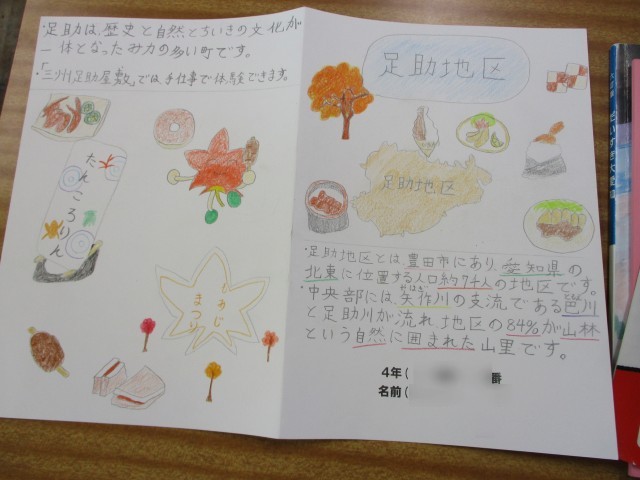 ・足助は、歴史と自然とちいきの文化が
一体となったみ力の多い町です。
・「三州足助屋敷」では、手仕事で体験できます。
たんころりん
もみじ
まつり
足助地区
足助地区
・足助地区とは、豊田市にあり、愛知県の
北東に位置する人口約7千人の地区です。
やはぎ ともえ
・中央部には、矢作川の支流である巴川
と足助川が流れ、地区の84%が山林
という自然に囲まれた山里です。
4年( 番
名前(